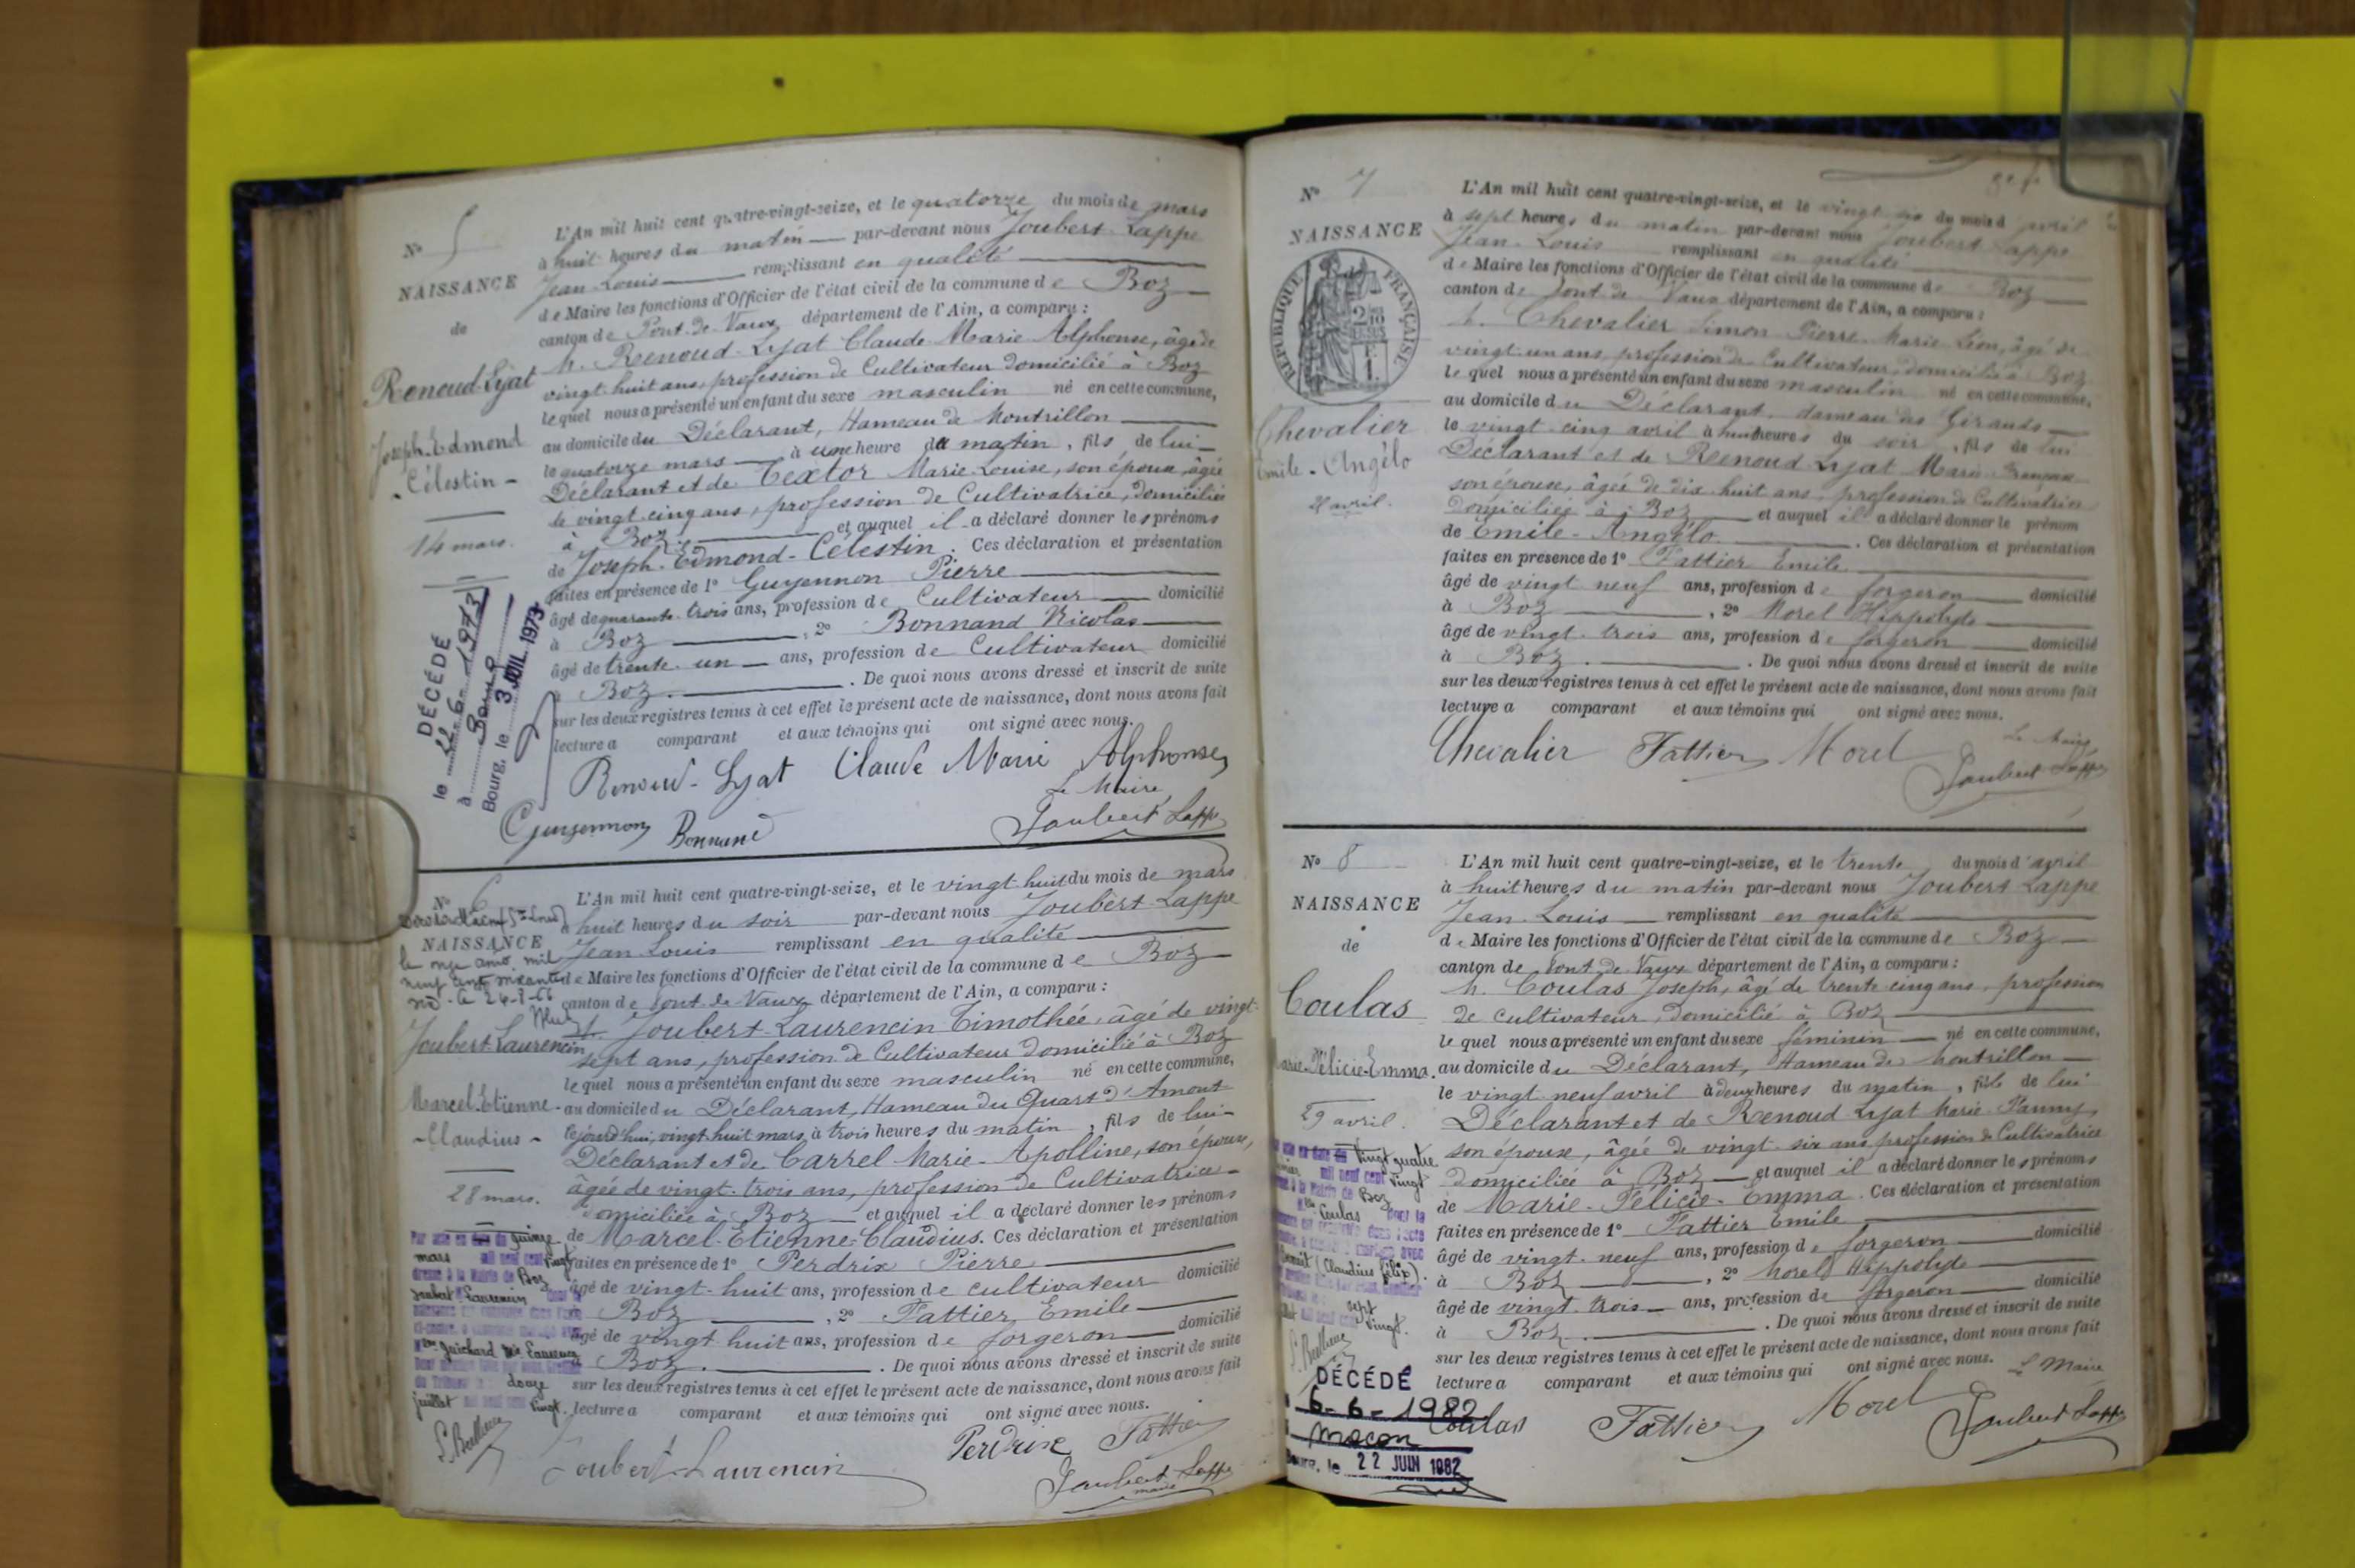 N° 5
NAISSANCE
de
Renoud-Lyat
Joseph-Edmond
-Célestin-
14 mars.
DÉCÉDÉ
le 22-6-1973
à Bourg
Bourg, le 3 JUIL. 1973
L'An mil huit cent quatre-vingt-seize, et le quatorze du mois de mars
à huit heures du matin par-devant nous Joubert-Lappe
Jean-Louis remplissant en qualité
de Maire les fonctions d'Officier de l'état civil de la commune de Boz
canton de Pont-de-Vaux département de l'Ain, a comparu :
M. Renoud-Lyat Claude-Marie-Alphonse, âgé de
vingt-huit ans, profession de Cultivateur domicilié à Boz
lequel nous a présenté un enfant du sexe masculin né en cette commune,
au domicile du Déclarant, Hameau de Montrillon
le quatorze mars à une heure du matin, fils de lui-
Déclarant et de Textor Marie-Louise, son épouse, âgée
de vingt-cinq ans, profession de Cultivatrice, domiciliée
à Boz et auquel il a déclaré donner les prénoms
de Joseph-Edmond-Célestin. Ces déclaration et présentation
faites en présence de 1° Guyennon Pierre
âgé de quarante-trois ans, profession de Cultivateur domicilié
à Boz, 2° Bonnand Nicolas
âgé de trente-un ans, profession de Cultivateur domicilié
à Boz. De quoi nous avons dressé et inscrit de suite
sur les deux registres tenus à cet effet le présent acte de naissance, dont nous avons fait
lecture a comparant et aux témoins qui ont signé avec nous.
Renoud-Lyat Claude Marie Alphonse
Le Maire,
Guyennon Bonnand Joubert Lappe
N° 6
NAISSANCE
le onze août mil
neuf cent soixante
Joubert-Laurencin
Marcel-Etienne-
-Claudius-
28 mars.
Par acte en date du quinze
mars mil neuf cent vingt
dressé à la Mairie de Boz
Joubert-Laurencin dont la
naissance est constatée dans l'acte
ci-contre, a contracté mariage avec
Guichard
douze
juillet mil neuf cent vingt.
L'An mil huit cent quatre-vingt-seize, et le vingt-huit du mois de mars
à huit heures du soir par-devant nous Joubert-Lappe
Jean-Louis remplissant en qualité
de Maire les fonctions d'Officier de l'état civil de la commune de Boz
canton de Pont-de-Vaux département de l'Ain, a comparu :
M. Joubert-Laurencin Timothée, âgé de vingt-
sept ans, profession de Cultivateur domicilié à Boz
lequel nous a présenté un enfant du sexe masculin né en cette commune,
au domicile du Déclarant, Hameau du Quart d'Amont
cejourd'hui, vingt-huit mars, à trois heures du matin, fils de lui-
Déclarant et de Carrel Marie-Apolline, son épouse,
âgée de vingt-trois ans, profession de Cultivatrice-
domiciliée à Boz et auquel il a déclaré donner les prénoms
de Marcel-Etienne-Claudius. Ces déclaration et présentation
faites en présence de 1° Perdrix Pierre
âgé de vingt-huit ans, profession de cultivateur domicilié
à Boz, 2° Fattier Emile
âgé de vingt huit ans, profession de forgeron domicilié
à Boz. De quoi nous avons dressé et inscrit de suite
sur les deux registres tenus à cet effet le présent acte de naissance, dont nous avons fait
lecture a comparant et aux témoins qui ont signé avec nous.
Perdrix Fattier
Joubert-Laurencin Joubert Lappe
maire
N° 7
NAISSANCE
RÉPUBLIQUE FRANÇAISE
Chevalier
Emile-Angélo
L'An mil huit cent quatre-vingt-seize, et le vingt six du mois d'avril
à sept heures du matin par-devant nous Joubert Lappe
Jean-Louis remplissant en qualité
de Maire les fonctions d'Officier de l'état civil de la commune de Boz
canton de Pont-de-Vaux département de l'Ain, a comparu :
M. Chevalier Simon-Pierre-Marie-Léon, âgé de
vingt-un ans, profession de Cultivateur, domicilié à Boz
lequel nous a présenté un enfant du sexe masculin né en cette commune,
au domicile du Déclarant, Hameau des Girauds
le vingt-cinq avril à huit heures du soir, fils de lui
Déclarant et de Renoud Lyat Marie
son épouse, âgée de dix-huit ans, profession de Cultivatrice
domiciliée à Boz et auquel il a déclaré donner le prénom
de Emile-Angélo. Ces déclaration et présentation
faites en présence de 1° Fattier Emile
âgé de vingt neuf ans, profession de forgeron domicilié
à Boz, 2° Morel Hippolyte
âgé de vingt-trois ans, profession de forgeron domicilié
à Boz. De quoi nous avons dressé et inscrit de suite
sur les deux registres tenus à cet effet le présent acte de naissance, dont nous avons fait
lecture a comparant et aux témoins qui ont signé avec nous.
Le Maire
Chevalier Fattier Morel Joubert Lappe
N° 8
NAISSANCE
de
Coulas
Marie-Félicie-Emma.
29 avril.
vingt quatre
mil neuf cent vingt
à la Mairie de Boz
Coulas dont la
mariage avec
(Claudius Félix).
sept
vingt.
DÉCÉDÉ
6-6-1982
Macon
Bourg, le 22 JUIN 1982
L'An mil huit cent quatre-vingt-seize, et le trente du mois d'avril
à huit heures du matin par-devant nous Joubert Lappe
Jean-Louis remplissant en qualité
de Maire les fonctions d'Officier de l'état civil de la commune de Boz
canton de Pont de Vaux département de l'Ain, a comparu :
M. Coulas Joseph, âgé de trente cinq ans, profession
de cultivateur, domicilié à Boz
lequel nous a présenté un enfant du sexe féminin né en cette commune,
au domicile du Déclarant, Hameau de Montrillon
le vingt neuf avril à deux heures du matin, fils de lui
Déclarant et de Renoud Lyat Marie-Fanny
son épouse, âgée de vingt-six ans, profession de Cultivatrice
domiciliée à Boz et auquel il a déclaré donner les prénoms
de Marie-Félicie-Emma. Ces déclaration et présentation
faites en présence de 1° Fattier Emile
âgé de vingt-neuf ans, profession de forgeron domicilié
à Boz, 2° Morel Hippolyte
âgé de vingt-trois ans, profession de forgeron domicilié
à Boz. De quoi nous avons dressé et inscrit de suite
sur les deux registres tenus à cet effet le présent acte de naissance, dont nous avons fait
lecture a comparant et aux témoins qui ont signé avec nous.
Le Maire
Coulas Fattier Morel Joubert Lappe